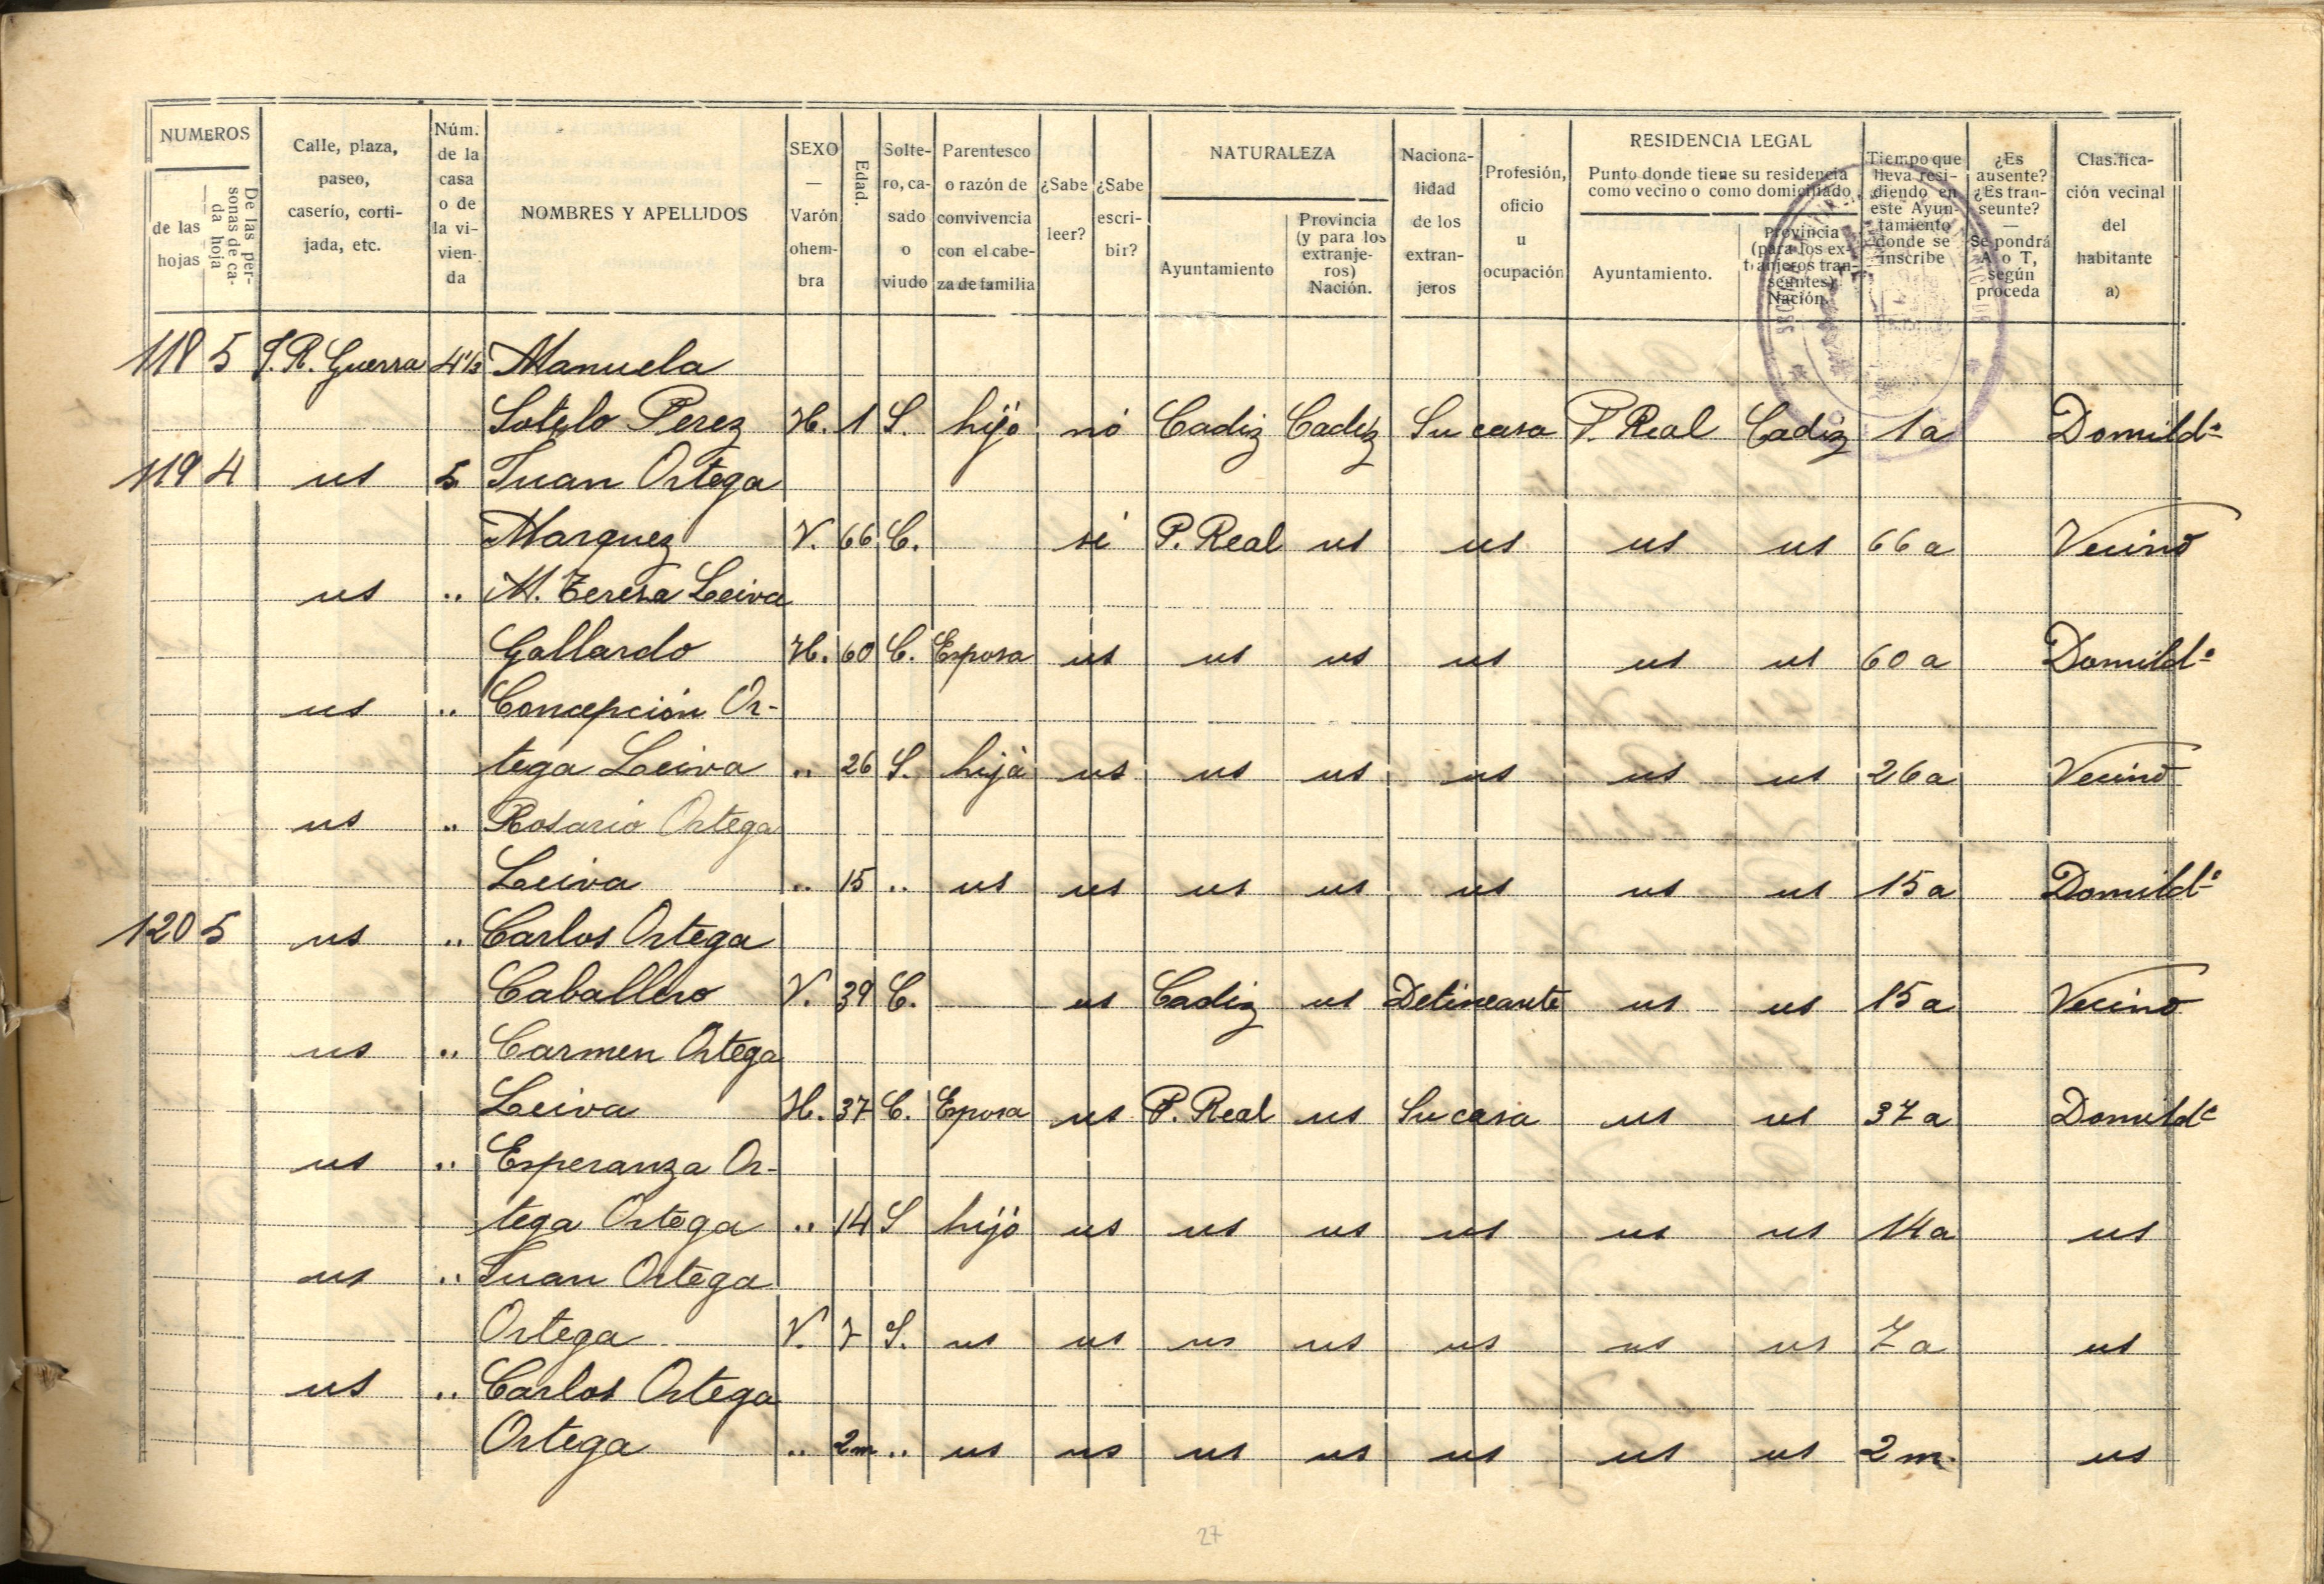 NUMEROS
de las hojas
De las personas de cada hoja
Calle, plaza, paseo, caserío, cortijada, etc.
Núm. de la casa o de la vivienda
NOMBRES Y APELLIDOS
SEXO — Varón o hembra
Edad.
Soltero, casado o viudo
Parentesco o razón de convivencia con el cabeza de familia
¿Sabe leer?
¿Sabe escribir?
NATURALEZA
Ayuntamiento
Provincia (y para los extranjeros) Nación.
Nacionalidad de los extranjeros
Profesión, oficio u ocupación
RESIDENCIA LEGAL
Punto donde tiene su residencia como vecino o como domiciliado
Ayuntamiento.
Provincia (para los extranjeros transeuntes) Nación.
Tiempo que lleva residiendo en este Ayuntamiento donde se inscribe
¿Es ausente? ¿Es transeunte? — Se pondrá A o T, según proceda
Clasificación vecinal del habitante a)
118 5 S. R. Guerra 4 Manuela
Sotelo Perez H. 1 S. hijo no Cadiz Cadiz Su casa P. Real Cadiz 1 a Domildº
119 4 us 5 Juan Ortega
Marquez V. 66 C. si P. Real us us us us 66 a Vecino
us .. M. Teresa Leiva
Gallardo H. 60 C. Esposa us us us us us us 60 a Domildº
us .. Concepción Or-
tega Leiva .. 26 S. hija us us us us us us 26 a Vecino
us .. Rosario Ortega
Leiva .. 15 .. us us us us us us us 15 a Domildº
120 5 us .. Carlos Ortega
Caballero V. 39 C. us Cadiz us Delineante us us 15 a Vecino
us .. Carmen Ortega
Leiva H. 37 C. Esposa us P. Real us Su casa us us 37 a Domildº
us .. Esperanza Or-
tega Ortega .. 14 S hijo us us us us us us 14 a us
us .. Juan Ortega
Ortega V. 7 S. us us us us us us us 7 a us
us .. Carlos Ortega
Ortega .. 2m .. us us us us us us us 2 m. us
27